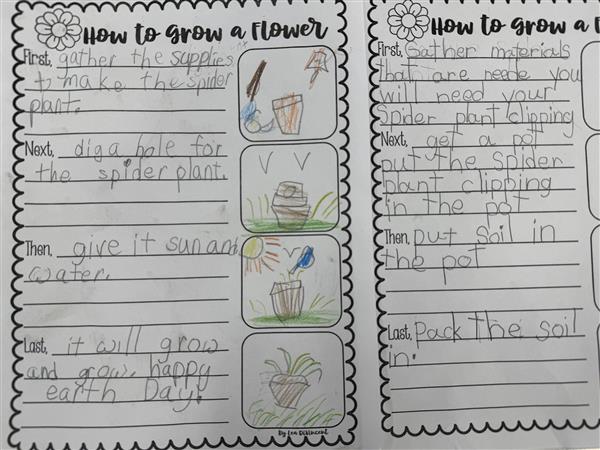 How to grow a Flower
First, gather the supplies
to make the spider
plant.
Next, dig a hole for
the spider plant.
Then, give it sun and
water.
Last, it will grow
and grow. happy
earth Day!
How to grow a F
First, Gather materials
that are neede you
will need your
Spider plant clipping
Next, get a pot
put the spider
plant clipping
in the pot
Then, put soil in
the pot
Last, Pack the soil
in.